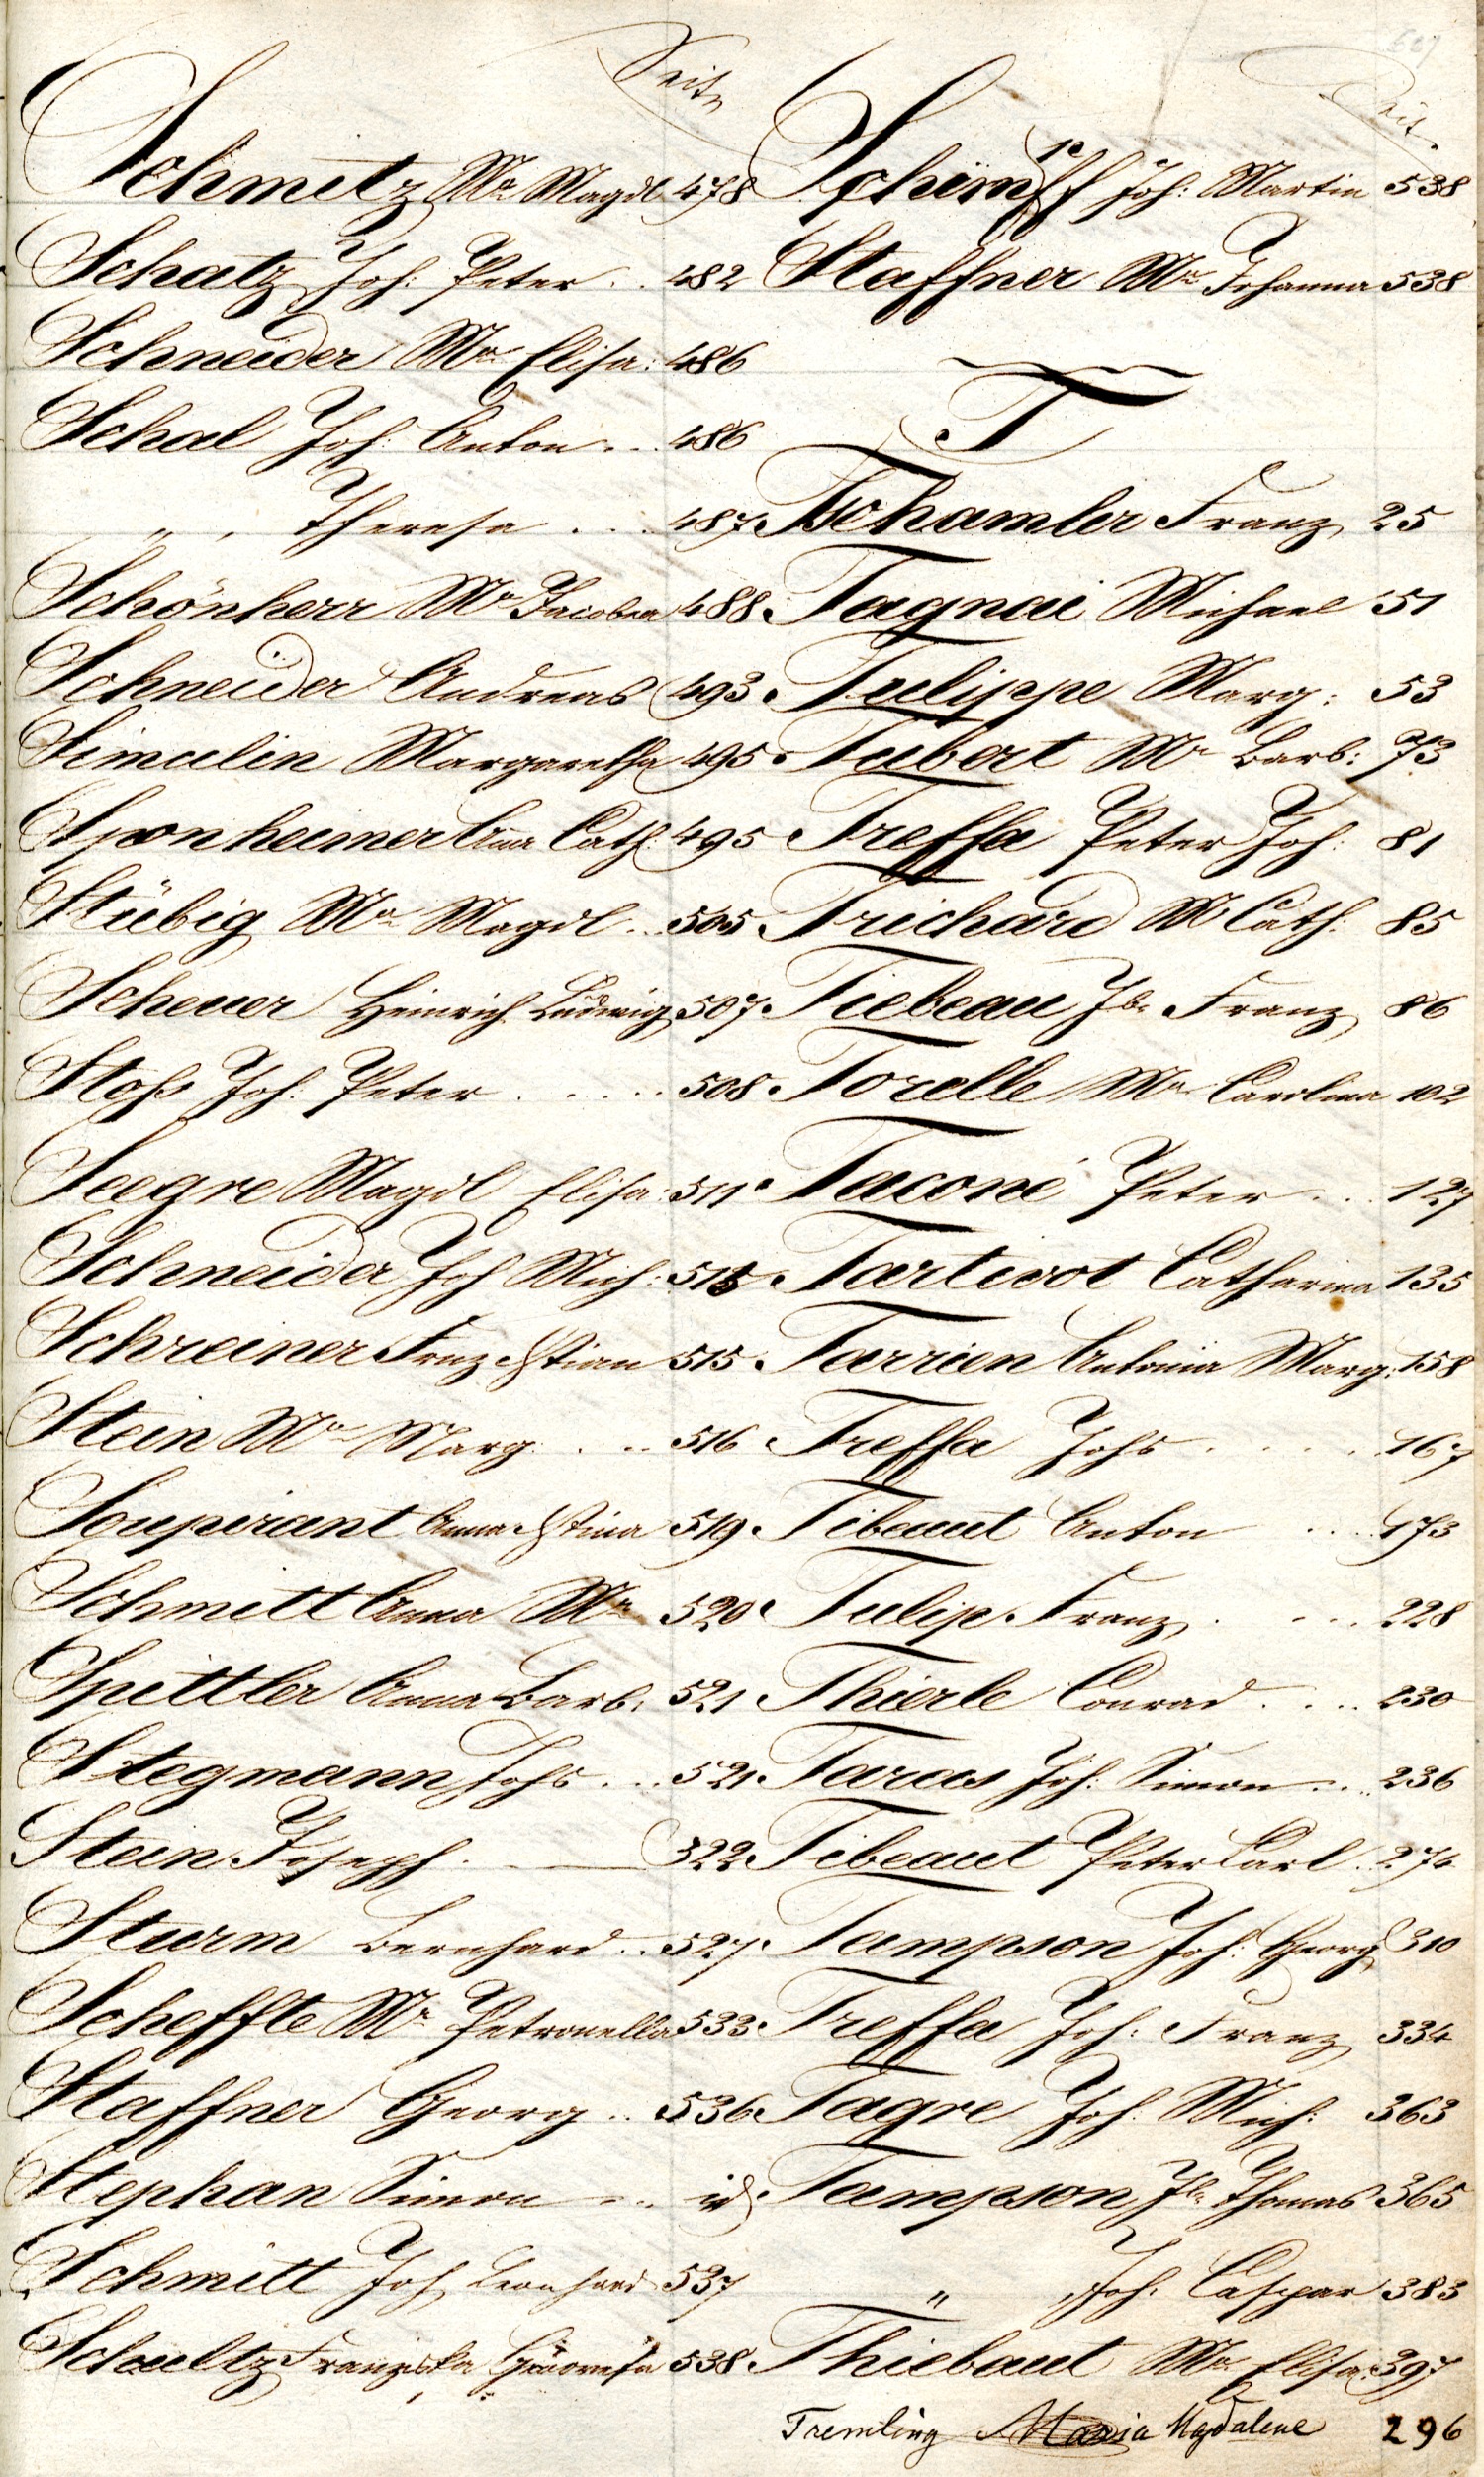 Seite
Schmitz Ma Magdl 478
Schatz Joh: Peter .. 482
Schneider Ma Elisa: 486
Schal Joh: Anton ... 486
" , Theresa ... 487
Schönherr Ma Jacobea 488
Schneider Andreas 493
Simulin Margaretha 495
Sponheimer Anna Cath: 495
Stübig Ma Magdl .. 505
Scheuer Heinrich Ludwig 507
Stoß Joh. Peter ..... 508
Seegre Magdl Elisa: 511
Schneider Joh Mich: 515
Schreiner Franz Xstian 515
Stein Ma Marg. ... 516
Soupirant Anna Xstina 519
Schmitt Anna Ma 520
Spittler Anna Barb. 521
Stegmann Johs ... 521
Stein Joseph. 522
Sturm Bernhard .. 527
Scheffte Ma Petronella 533
Staffner Georg .. 536
Stephan Simon ... id
Schmitt Joh Leonhard 537
Schultz Franziska 538
Seit.
Schimpff Joh: Martin 538
Staffner Ma Johanna 538
T
Tschamler Franz 25
Tagnai Michael 51
Tulippe Marg: 53
Tubert Ma Barb: 73
Treffa Peter Joh: 81
Trichard M Cath: 85
Tiebeau Jb. Franz 86
Torelle Ma Carolina 102
Taconé Peter .. 127
Tartivot Catharina 135
Tarrien Antonia Marg: 158
Treffa Johs .... 167
Tibeaut Anton ... 173
Tulip Franz .... 228
Thierle Conrad .... 230
Taras Joh: Simon ... 236
Tibeaut Peter Carl . 274
Tampson Joh: Georg 310
Treffa Joh: Franz 334
Tagre Joh: Mich: 363
Tampson Jb Thomas 365
" Joh. Caspar 383
Thiebaut Ma Elisa: 397
Tremling Maria Magdalene 296